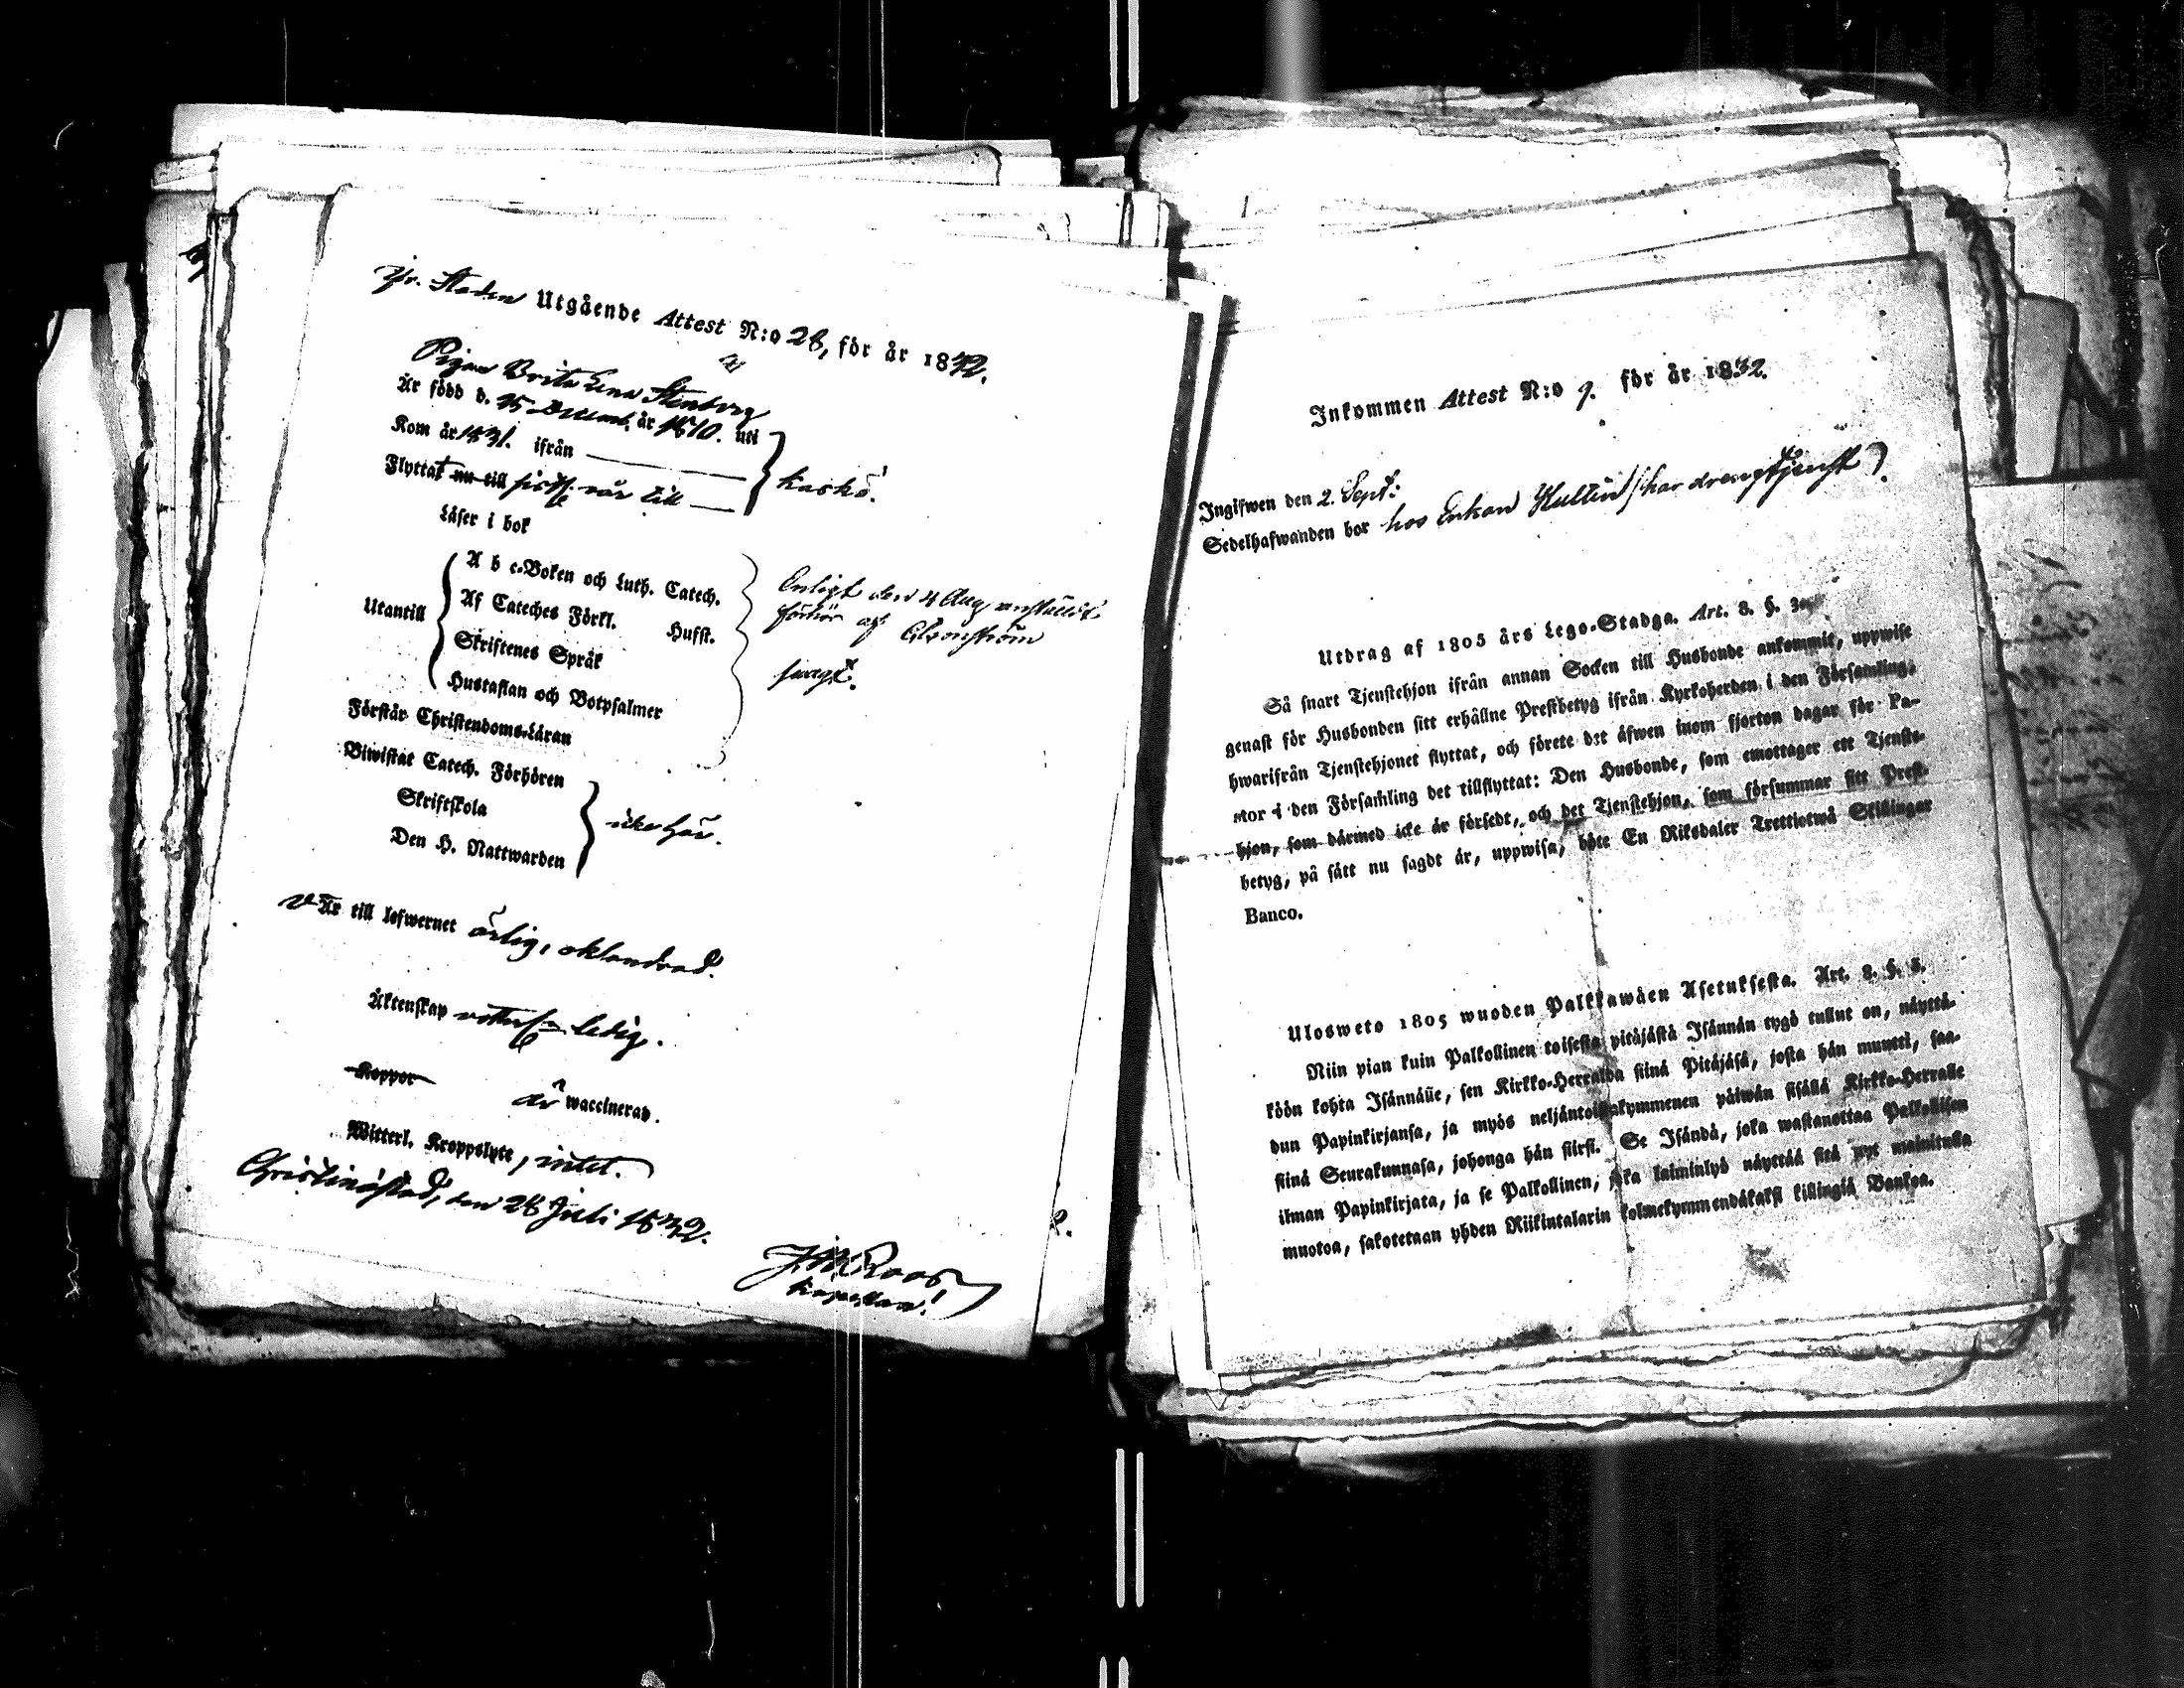 fr. Staden Utgående Attest N:o 28, för år 1832.
Pigan Brita Lena Stenberg
Är född d. 15 Decemb. år 1810. uti
Kom år 1831. ifrån
Flyttat nu till sistl. vår till
Kaskö.
Läser i bok
Utantill
A b c-Boken och Luth. Catech.
Af Cateches Förkl. Hufst.
Skriftenes Språk
Hustaflan och Botpsalmer
Enligt den 4 Aug anställdt
förhör af
svagt.
Förstår Christendoms-Läran
Biwistat Catech. Förhören
Skriftskola
Den H. Nattwarden
icke här.
Är till lefwernet ärlig, oklandrad.
Äktenskap ledig.
Koppor är waccinerad.
Witterl. Kroppslyte, intet.
Christinæstad, den 28 Juli 1832.
Roos
Kapellan.
Inkommen Attest N:o 9. för år 1832.
Ingifwen den 2. Sept:
Sedelhafwanden bor hos Enkan Hultin (har drengtjenst)
Utdrag af 1805 års Lego-Stadga. Art. 8. §. 3.
Så snart Tjenstehjon ifrån annan Socken till Husbonde ankommit, uppwise
genast för Husbonden sitt erhållne Prestbetyg ifrån Kyrkoherden i den Församling,
hwarifrån Tjenstehjonet flyttat, och förete det äfwen inom fjorton dagar för Pa-
stor i den Församling det tillflyttat: Den Husbonde, som emottager ett Tjenste-
hjon, som därmed icke är försedt, och det Tjenstehjon, som försummar sitt Prest-
betyg, på sätt nu sagdt är, uppwisa, böte En Riksdaler Trettiotwå Skillingar
Banco.
Ulosweto 1805 wuoden Palkkawäen Asetuksesta. Art. 8. §. 3.
Niin pian kuin Palkollinen toisesta pitäjästä Isännän tygö tullut on, näyttä-
köön kohta Isännälle, sen Kirkko-Herralda siinä Pitäjäsä, josta hän muutti, saa-
dun Papinkirjansa, ja myös neljäntoistakymmenen päiwän sisällä Kirkko-Herralle
siinä Seurakunnasa, johonga hän siirsi. Se Isändä, joka wastanottaa Palkollisen
ilman Papinkirjata, ja se Palkollinen, joka laiminlyö näyttää sitä nyt mainitulla
muotoa, sakotetaan yhden Riikintalarin kolmekymmendäkaksi killingiä Bankoa.